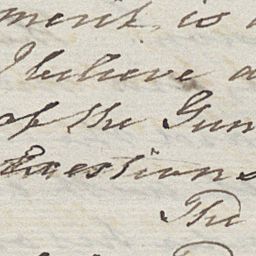 ment, is
I believe a
of the Gun
Questions
The